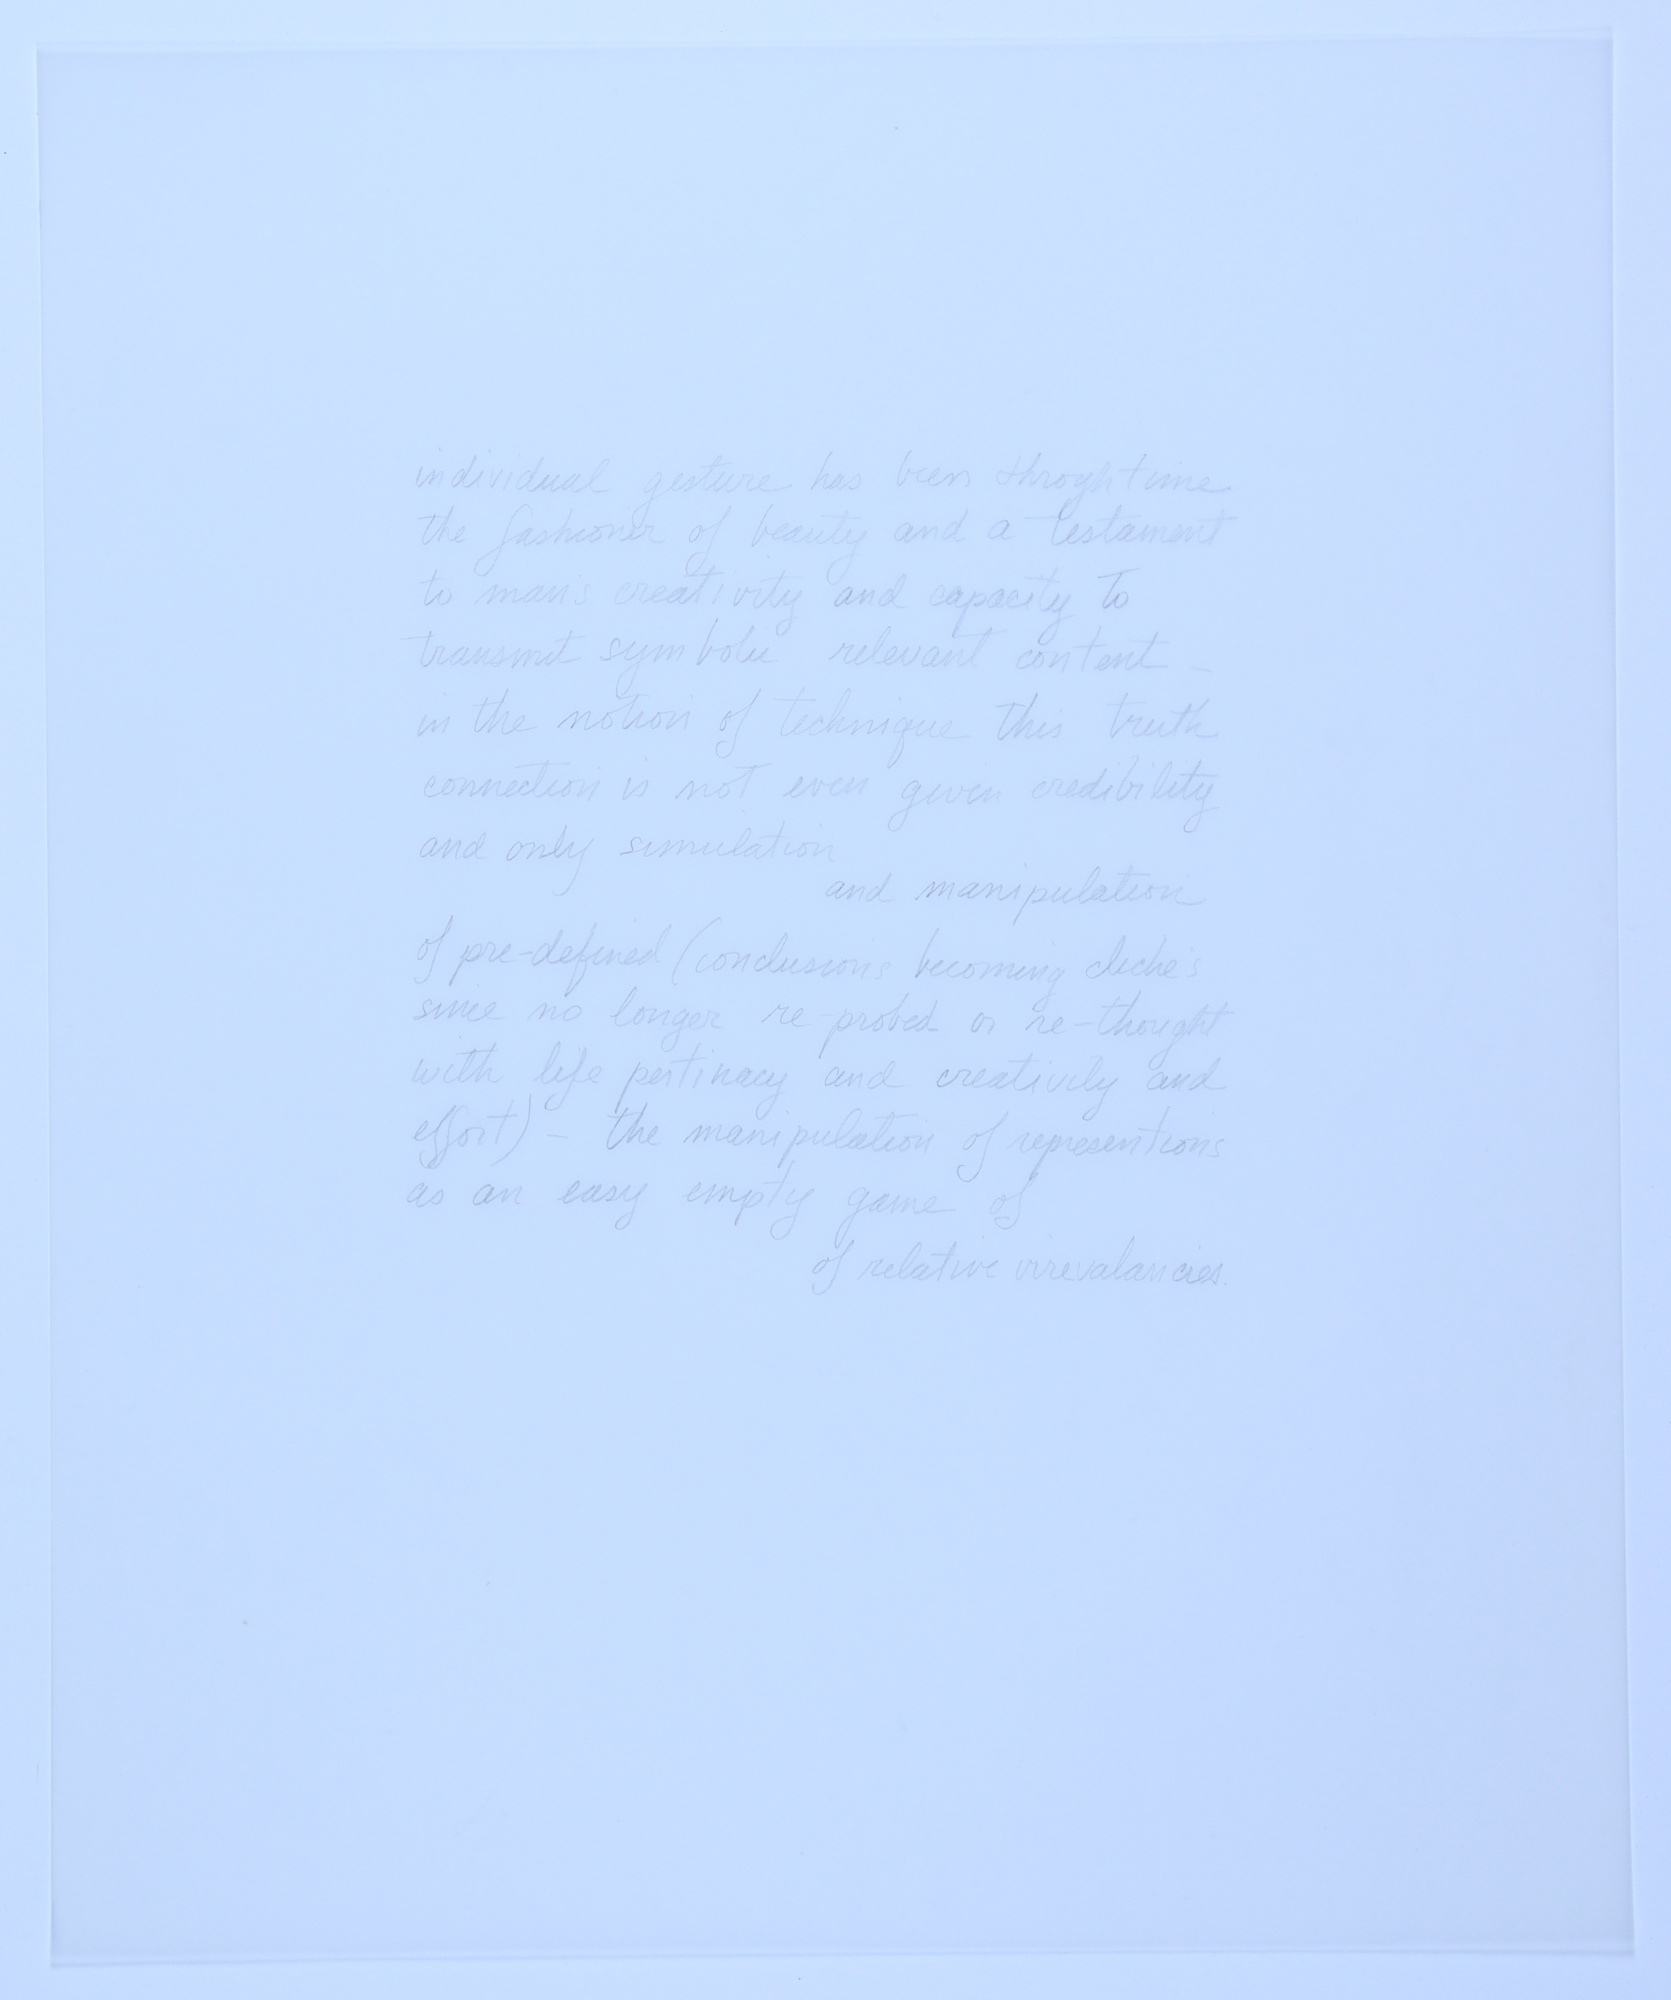 individual gesture has been throgh time
the fashioner of beauty and a testament
to man's creativity and capacity to
transmit symbolic relevant content -
in the notion of technique this truth
connection is not even given credibility
and only simulation
and manipulation
of pre-defined (conclusions becoming cliche's
since no longer re-probed or re-thought
with life pertinacy and creativily and
effort) - the manipulation of representions
as an easy empty game of
of relative irrevalancies.